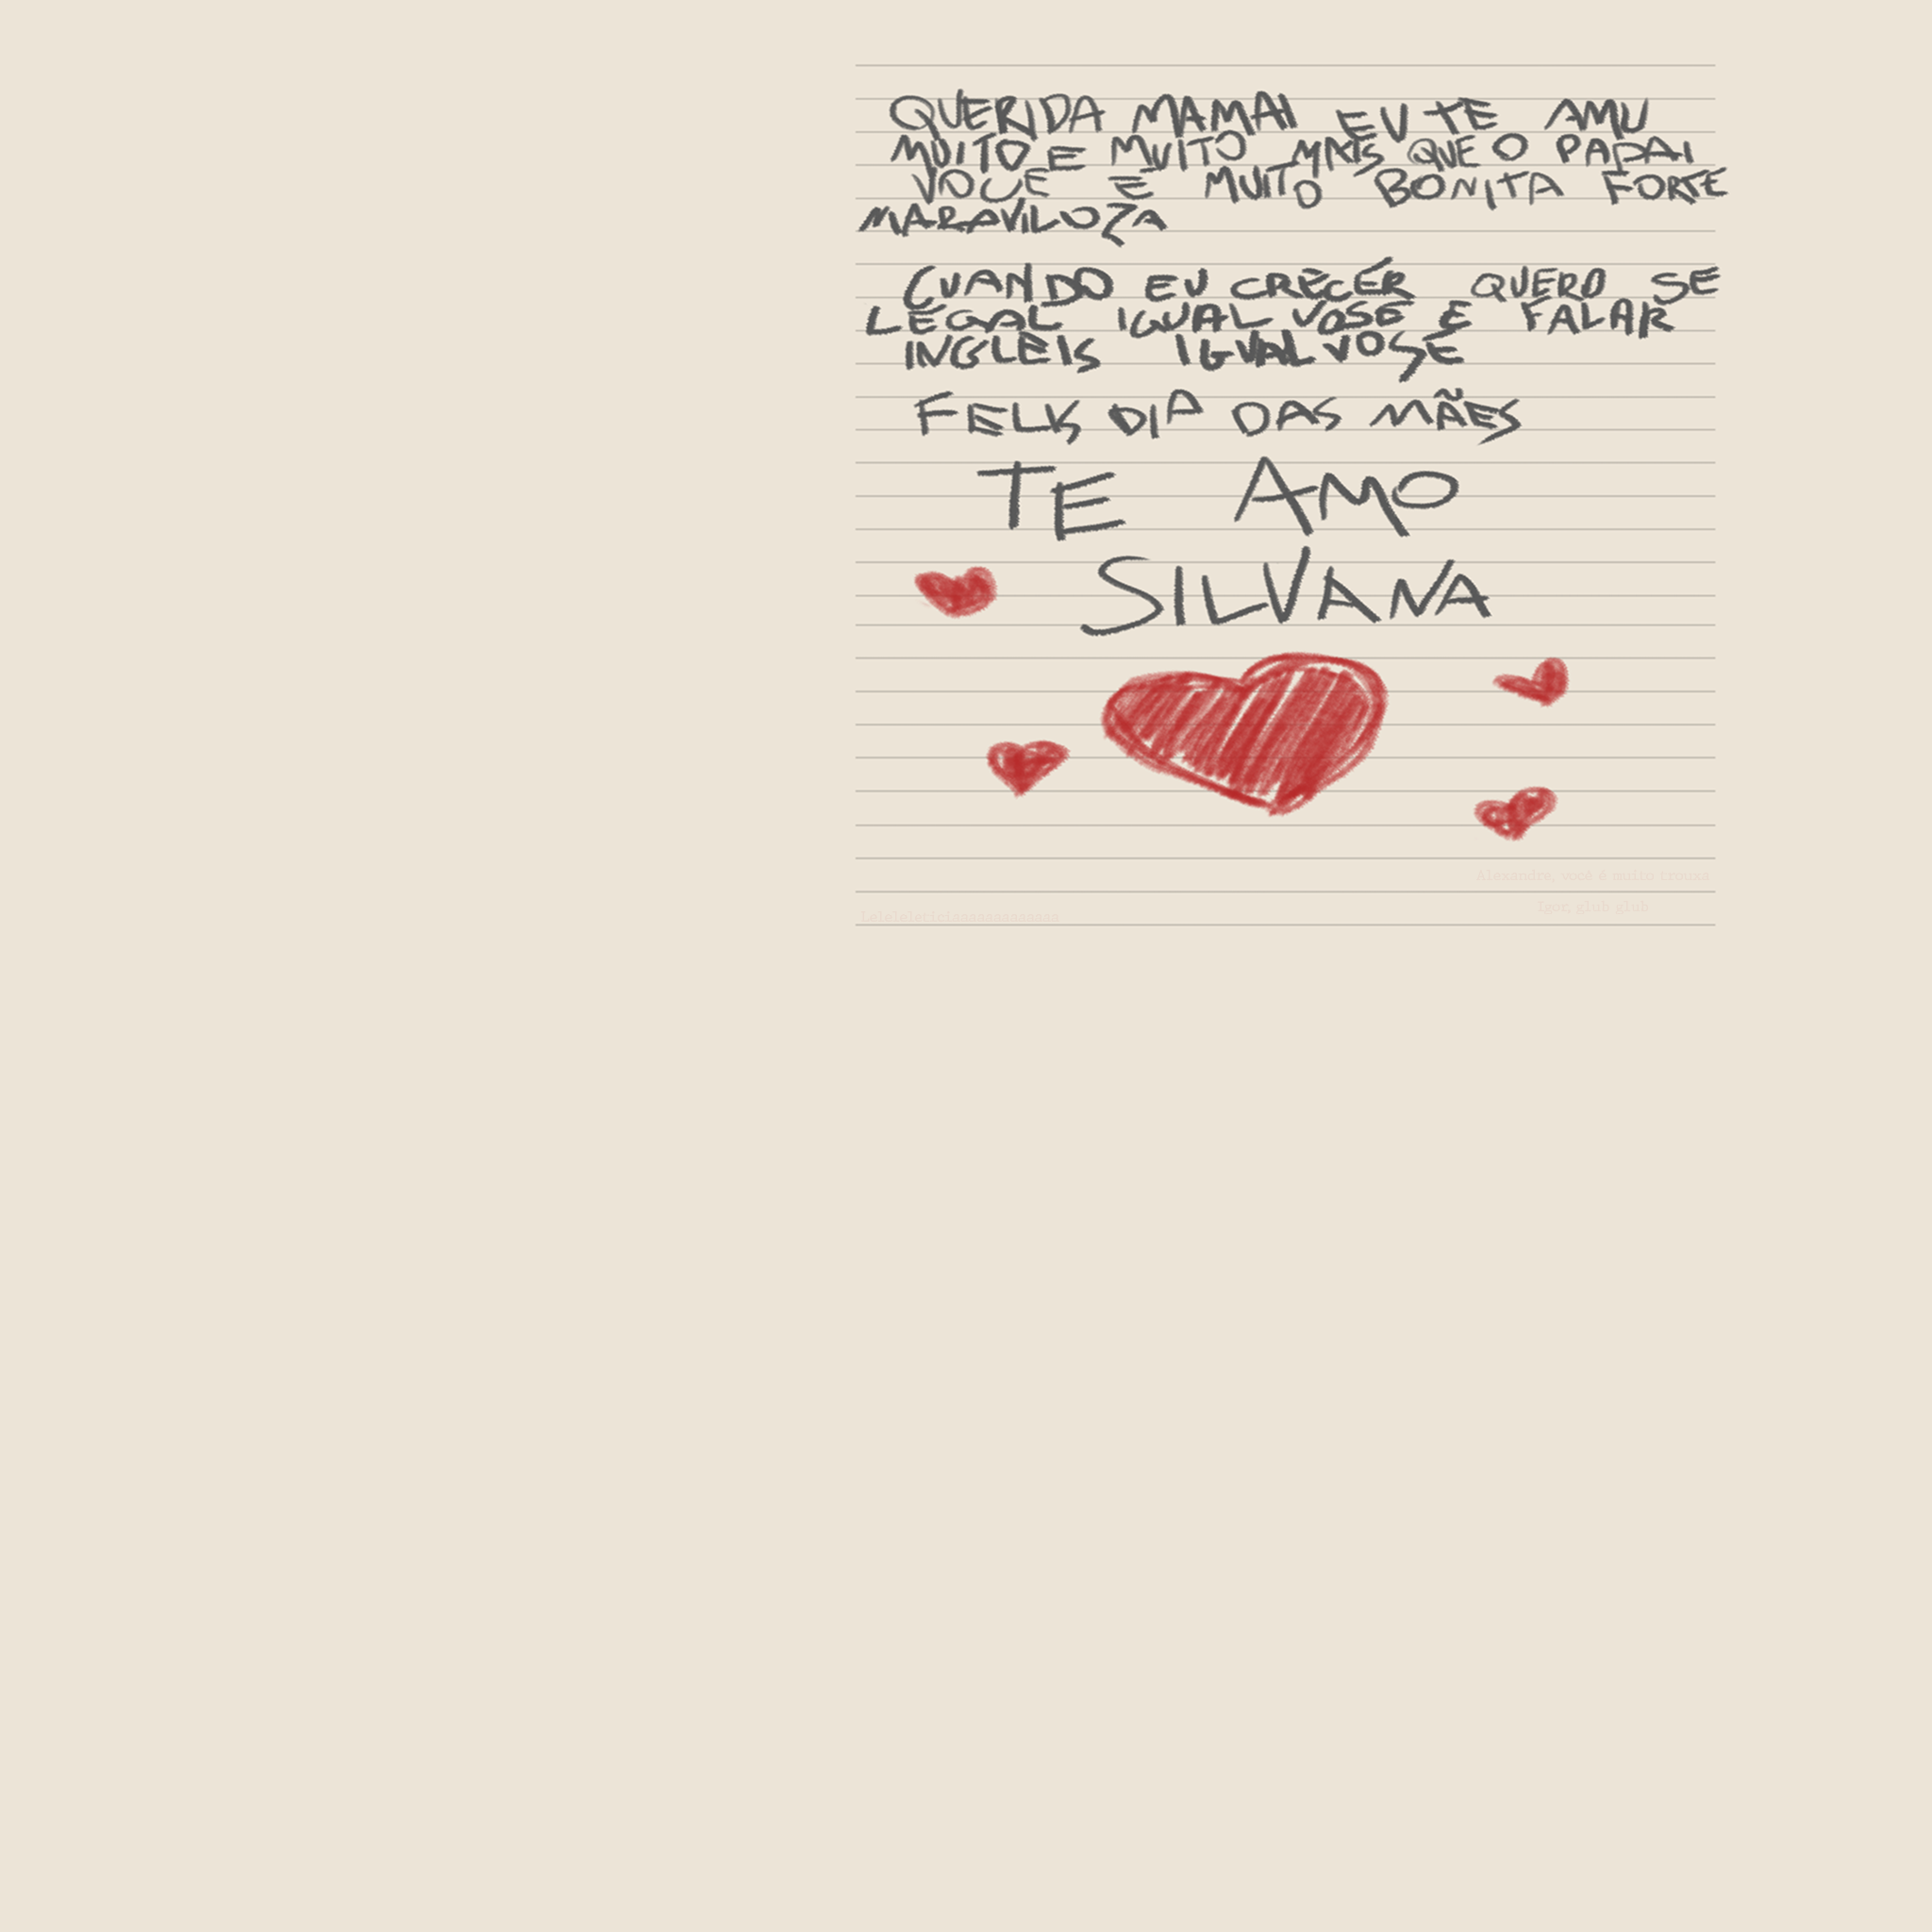 QUERIDA MAMAI EU TE AMU
MUITO E MUITO MAIS QUE O PAPAI
VOCE E MUITO BONITA FORTE
MARAVILOZA
CUANDO EU CRECER QUERO SE
LEGAL IGUAL VOSE E FALAR
INGLEIS IGUAL VOSE
FELIS DIA DAS MÃES
TE AMO
SILVANA
Alexandre, você é muito trouxa
Igor, glub glub